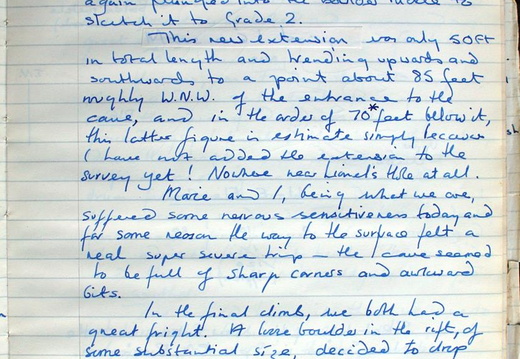 again plunged into the boulder ruckle to
sketch it to Grade 2.
This new extension was only 50ft
in total length and trending upwards and
southwards to a point about 85 feet
roughly W.N.W. of the entrance to the
cave, and in the order of 70* feet below it,
this latter figure is estimate simply because
I have not added the extension to the
survey yet! Nowhere near Lionel's Hole at all.
Marie and I, being what we are,
suffered some nervous sensitiveness today and
for some reason the way to the surface felt a
real super severe trip – the cave seemed
to be full of sharp corners and awkward
bits.
In the final climb, we both had a
great fright. A loose boulder in the rift, of
some substantial size, decided to drop